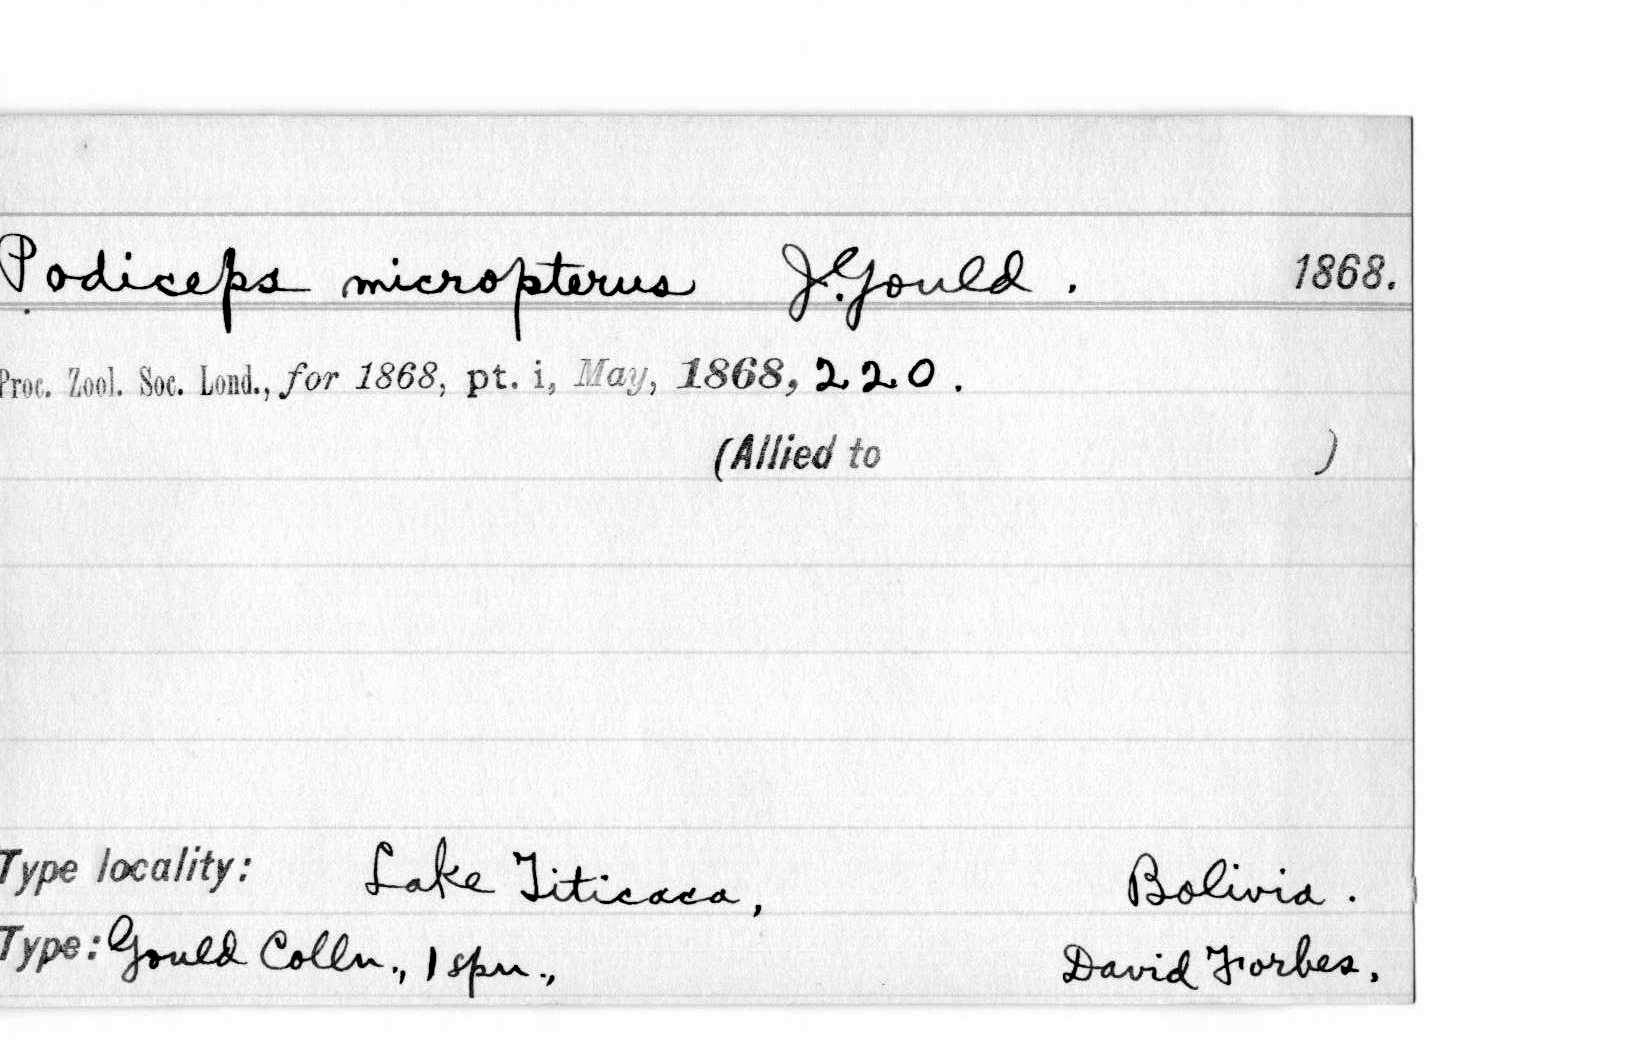 Podiceps micropterus J. Gould. 1868.
Proc. Zool. Soc. Lond., for 1868, pt. i, May, 1868, 220.
(Allied to )
Type locality: Lake Titicaca, Bolivia.
Type: Gould Colln., 1 spn., David Forbes.